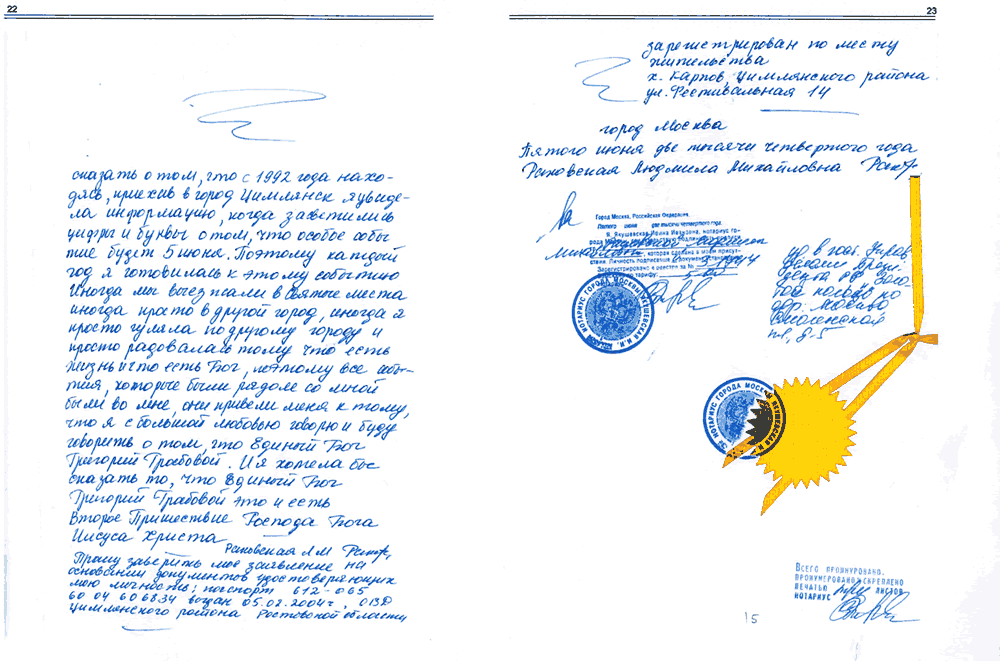 22
сказать о том, что с 1992 года нахо-
дясь, приехав в город Цимлянск я увиде-
ла информацию, когда засветились
цифры и буквы о том, что особое собы-
тие будет 5 июня. Поэтому каждый
год я готовилась к этому событию
Иногда мы выезжали в святые места
иногда просто в другой город, иногда я
просто гуляла по другому городу и
просто радовалась тому что есть
жизнь и что есть Бог, поэтому все собы-
тия, которые были рядом со мной
были во мне, они привели меня к тому,
что я с большой любовью говорю и буду
говорить о том, что Единый Бог
Григорий Грабовой. И я хотела бы
сказать то, что Единый Бог
Григорий Грабовой это и есть
Второе Пришествие Господа Бога
Иисуса Христа
Раковская Л М
Прошу заверить мое заявление на
основании документов удостоверяющих
мою личность: паспорт 612-065
60 04 606834 выдан 05.02.2004г, ОВД
Цимлянского района Ростовской области
23
зарегистрирован по месту
жительства
х. Карпов, Цимлянского района
ул. Фестивальная 14
город Москва
Пятого июня две тысячи четвертого года
Раковская Людмила Михайловна
Город Москва, Российская Федерация.
Пятого июня две тысячи четвертого года.
Я, Якушевская Ирина Ивановна, нотариус го-
рода Москвы, свидетельствую подлинность подписи
которая сделана в моем присут-
ствии. Личность подписавшего документ установлена.
Зарегистрировано в реестре за №
Взыскано по тарифу:
НОТАРИУС ГОРОДА МОСКВЫ ЯКУШЕВСКАЯ И.И.
НОТАРИУС ГОРОДА МОСКВЫ ЯКУШЕВСКАЯ И.И.
ВСЕГО ПРОШНУРОВАНО,
ПРОНУМЕРОВАНО И СКРЕПЛЕНО
ПЕЧАТЬЮ ЛИСТОВ
НОТАРИУС
15